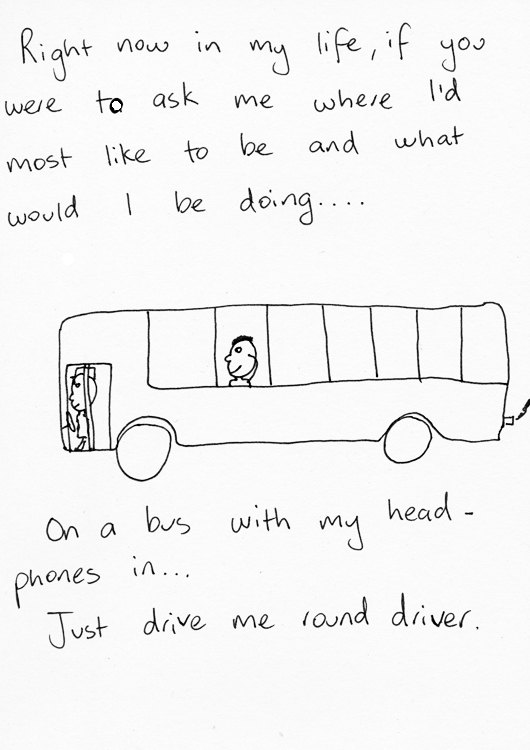 Right now in my life, if you
were to ask me where I'd
most like to be and what
would I be doing....
On a bus with my head-
phones in...
Just drive me round driver.